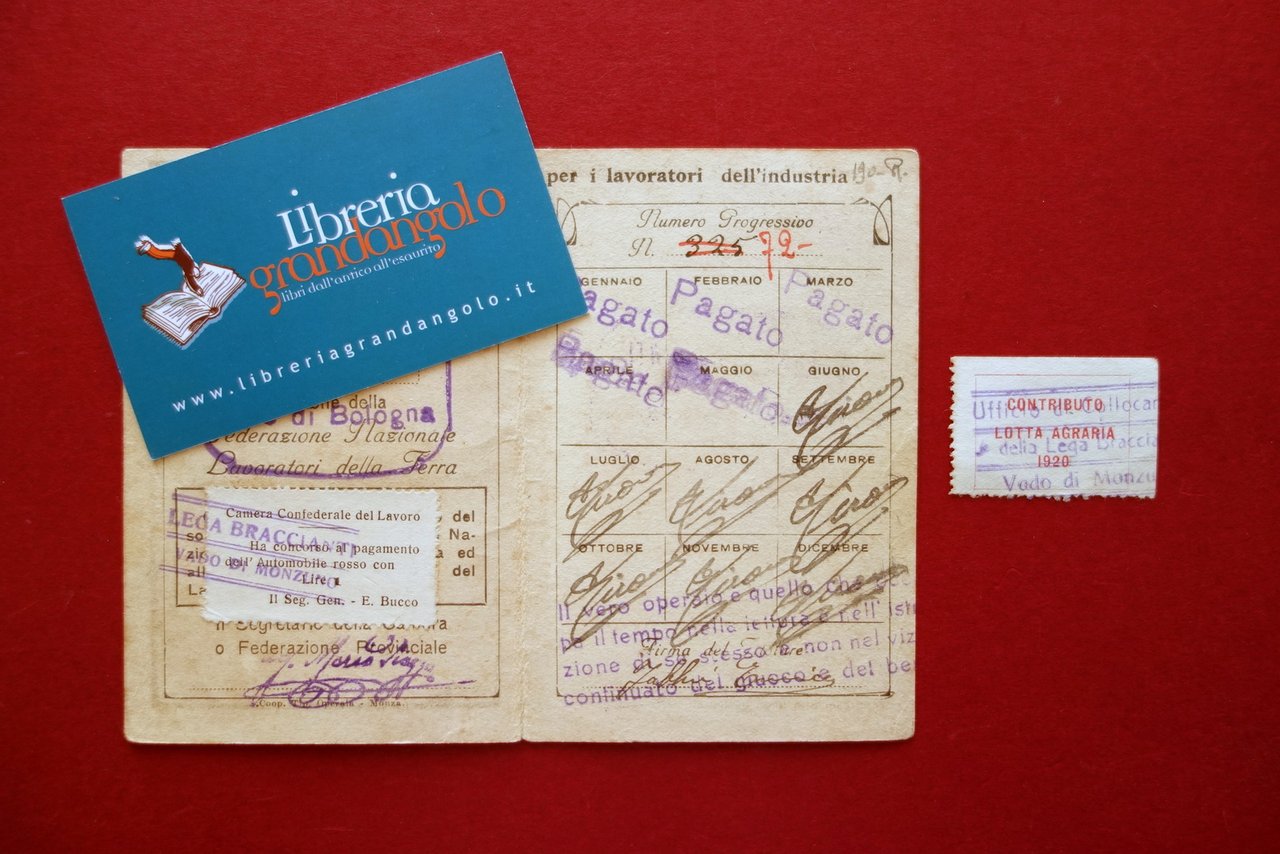 Libreria
grandangolo
libri dall'antico all'esaurito
www.libreriagrandangolo.it
one della
di Bologna
Federazione Nazionale
Lavoratori della Terra
Camera Confederale del Lavoro
Ha concorso al pagamento
dell'Automobile rosso con
Lire 1
Il Seg. Gen. - E. Bucco
del
so
Na-
zi
ed
all
del
La
LEGA BRACCIANTI
VADO DI MONZUNO
Il Segretario della Camera
o Federazione Provinciale
Coop. Tip. Operaia - Monza.
per i lavoratori dell'industria
Numero Progressivo
N. 325 72-
GENNAIO FEBBRAIO MARZO
Pagato Pagato Pagato
APRILE MAGGIO GIUGNO
Pagato Pagato
LUGLIO AGOSTO SETTEMBRE
OTTOBRE NOVEMBRE DICEMBRE
Il vero operaio è quello che
pa il tempo nella lettura e nell'istru
zione di se stesso e non nel viz
continuato del giuoco e del be
Firma del Titolare
Ufficio di Collocam
CONTRIBUTO
LOTTA AGRARIA
della Lega Braccia
1920
Vado di Monzu